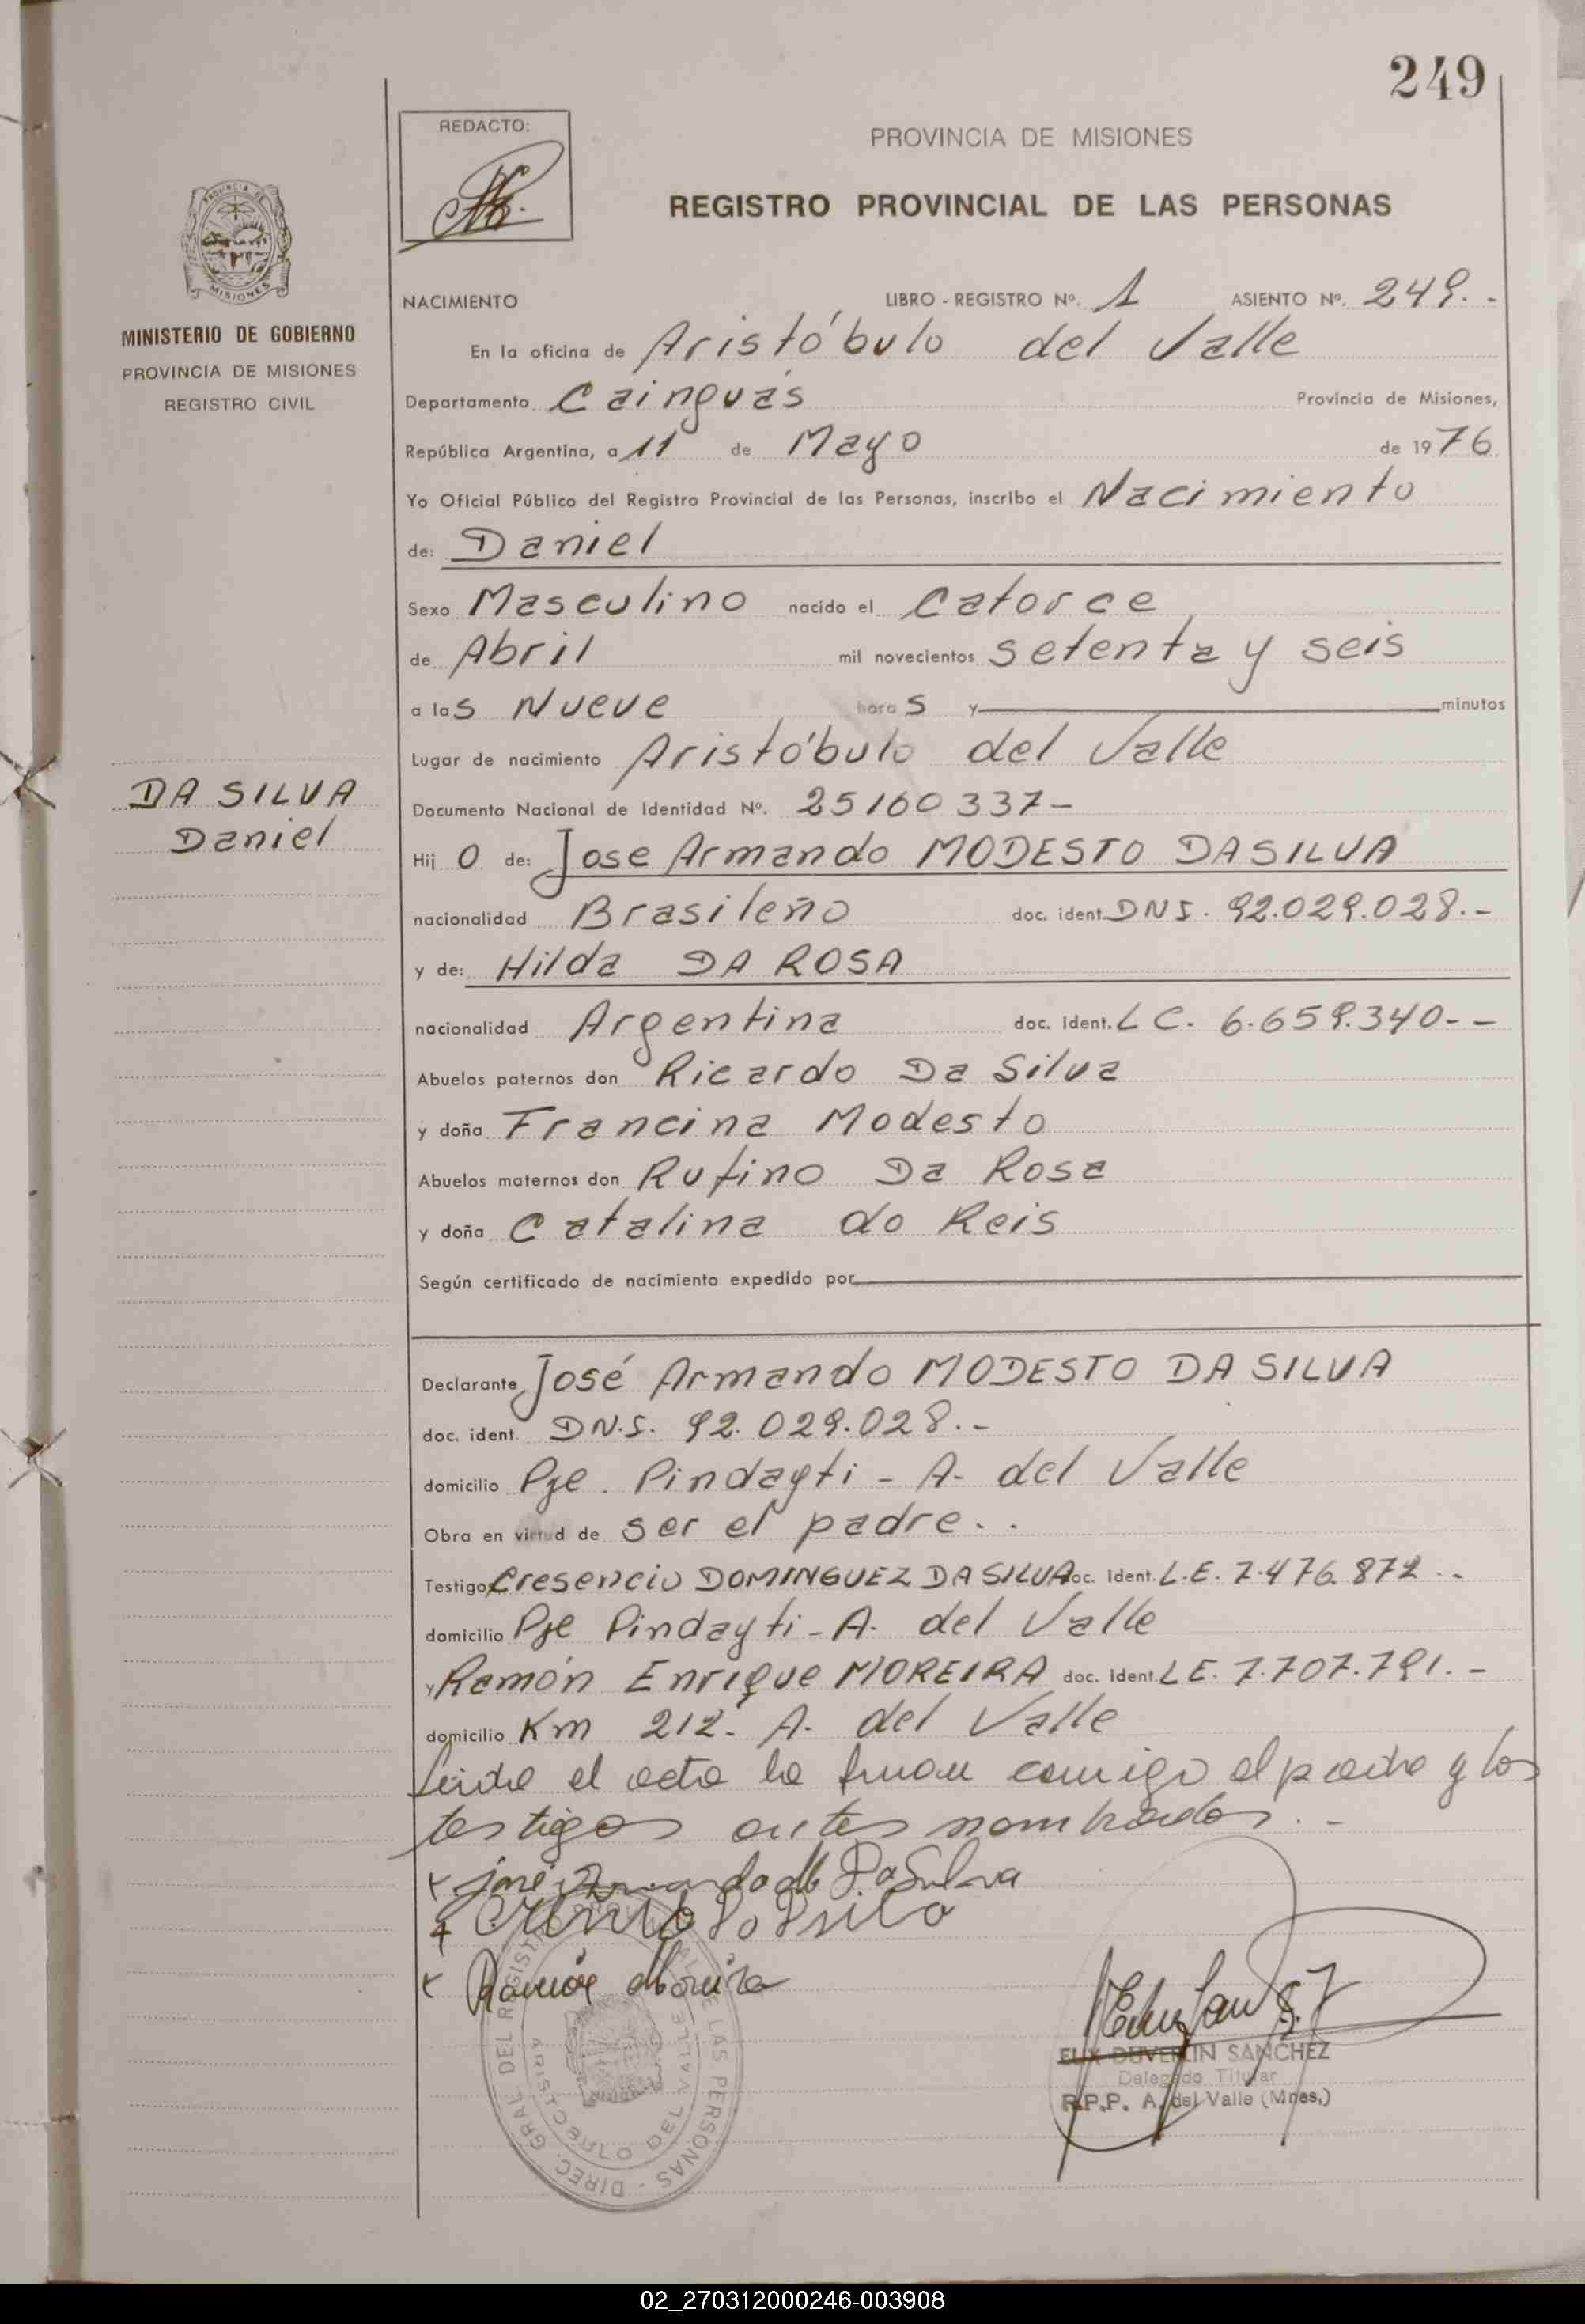 249
REDACTO:
PROVINCIA DE MISIONES
REGISTRO PROVINCIAL DE LAS PERSONAS
MINISTERIO DE GOBIERNO
PROVINCIA DE MISIONES
REGISTRO CIVIL
NACIMIENTO LIBRO - REGISTRO Nº. 1 ASIENTO Nº. 249.-
En la oficina de Aristóbulo del Valle
Departamento Cainguás Provincia de Misiones,
República Argentina, a 11 de Mayo de 1976
Yo Oficial Público del Registro Provincial de las Personas, inscribo el Nacimiento
de: Daniel
Sexo Masculino nacido el catorce
de Abril mil novecientos setenta y seis
a las Nueve horas y minutos
Lugar de nacimiento Aristóbulo del Valle
DA SILVA
Daniel
Documento Nacional de Identidad Nº. 25160337-
Hijo de: Jose Armando MODESTO DA SILVA
nacionalidad Brasileño doc. ident. DNI. 92.029.028.-
y de: Hilda DA ROSA
nacionalidad Argentina doc. ident. LC. 6.659.340--
Abuelos paternos don Ricardo Da Silva
y doña Francina Modesto
Abuelos maternos don Rufino Da Rosa
y doña Catalina do Reis
Según certificado de nacimiento expedido por
Declarante José Armando MODESTO DA SILVA
doc. ident. DN.I. 92.029.028.-
domicilio Pje. Pindayti - A. del Valle
Obra en virtud de ser el padre..
Testigos Cresencio DOMINGUEZ DA SILVA doc. ident. L.E. 7.476.872..
domicilio Pje Pindayti - A. del Valle
y Ramón Enrique MOREIRA doc. ident. LE. 7.707.791.-
domicilio Km 212- A. del Valle
Leida el acta la firman conmigo el padre y los
testigos antes nombrados.-
x José Armando M Da Silva
x
x Ramón Moreira
DIREC. GRAL. DEL REGISTRO DE LAS PERSONAS
ARISTOBULO DEL VALLE
SANCHEZ
Delegado Titular
R.P.P. A. del Valle (Mnes,)
02_270312000246-003908